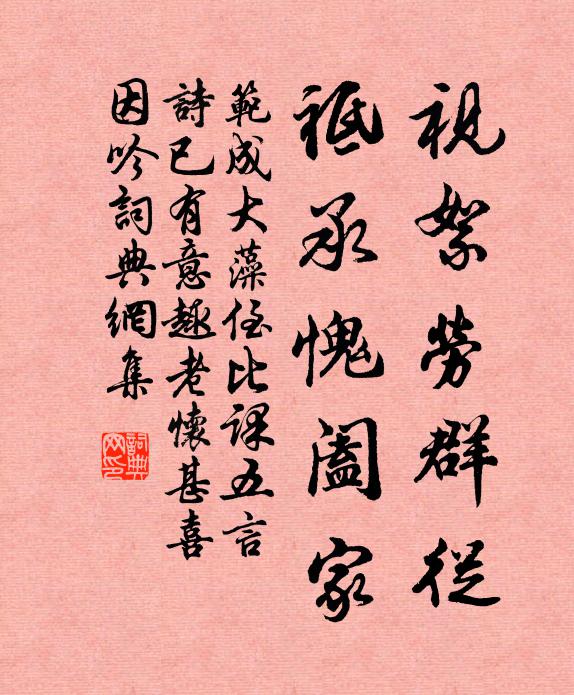 祝絮勞群從
祗承愧闔家
範成大藻侄比課五言
詩已有意趣老懷甚喜
因吟詞典網集
詞典网印